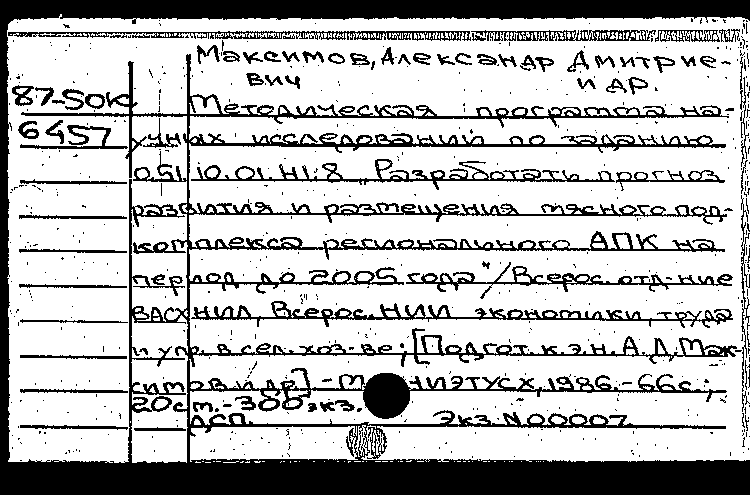 Максимов, Александр Дмитрие-
вич и др.
87-50к Методическая программа на-
6457 учных исследований по заданию
0.51.10.01.Н1.8 „Разработать прогноз
развития и размещения мясного под-
комплекса регионального АПК на
период до 2005 года"/Всерос. отд-ние
ВАСХНИЛ, Всерос. НИИ экономики, труда
и упр. в сел. хоз-ве; [Подгот. к.э.н. А.Д. Мак-
симов и др.] - М. НИЭТУСХ, 1986. - 66с.;
20см. - 300 экз.
ДСП. Экз. N00007